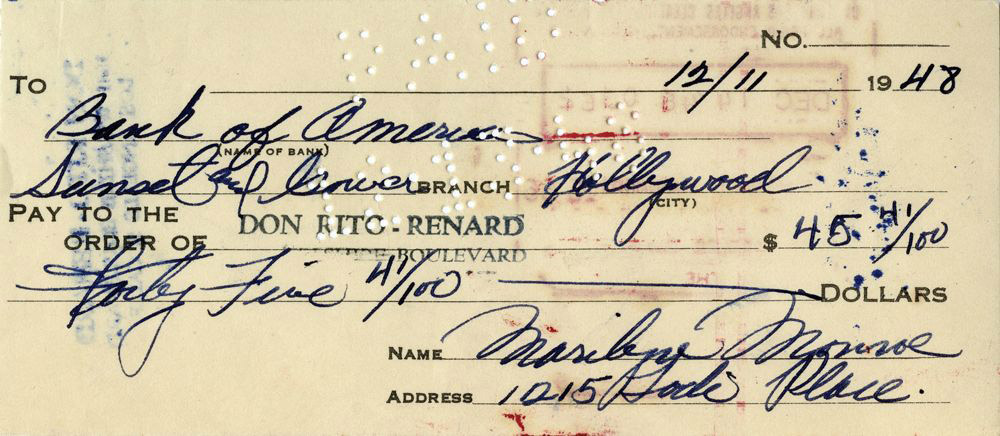 No.
To 12/11 1948
Bank of America
(NAME OF BANK)
Sunset and Gower BRANCH Hollywood
(CITY)
PAY TO THE
ORDER OF DON RITO-RENARD $ 45 41/100
BOULEVARD
Forty Five 41/100 DOLLARS
NAME Marilyn Monroe
ADDRESS 1215 Lodi Place.